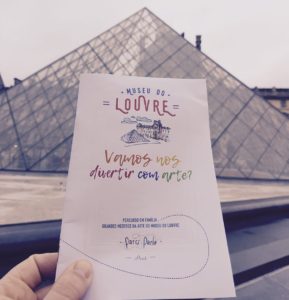 MUSEU DO
LOUVRE
Vamos nos
divertir com arte?
PERCURSO EM FAMÍLIA
GRANDES MESTRES DA ARTE DO MUSEU DO LOUVRE